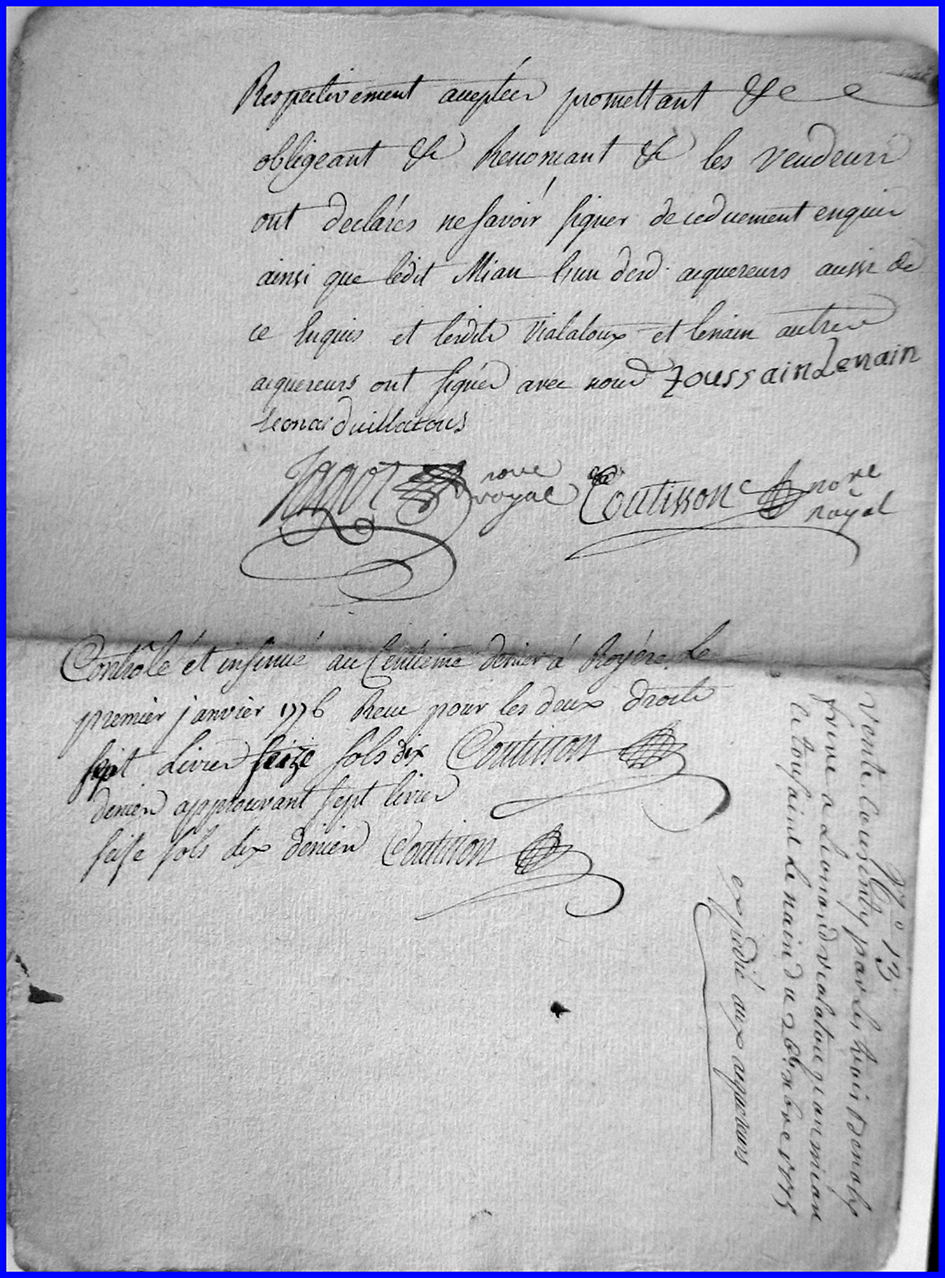 Respectivement acceptées promettant &c
obligeant &c Renoncant &c les vendeurs
ont declarés ne savoir signer de ce duement enquis
ainsi que ledit Mian l'un desd. acquereurs aussi de
ce Enquis et lesdits vialatoux et lenain autres
acquereurs ont signés avec nous Toussain Lenain
Leonard uillatous
nore royal Coutisson nore royal
Contrôlé et insinué au Centieme denier à Royére Le
premier janvier 1776 Reçu pour les deux droits
sept Livres seize sols dix Coutisson
deniers approuvant sept livres
seise sols dix deniers Coutisson
expedié aux acquereurs
No 13
Vente Consenty par Les trois
frere a Léonard vialatou jean mian
et toussaint Le nain du 26 xbre 1775